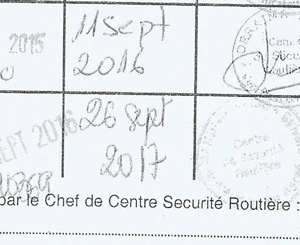 2015
11 Sept
2016
SEPT 2016
26 Sept
2017
Centre
de Sécurité
Routière
par le Chef de Centre Securité Routière :